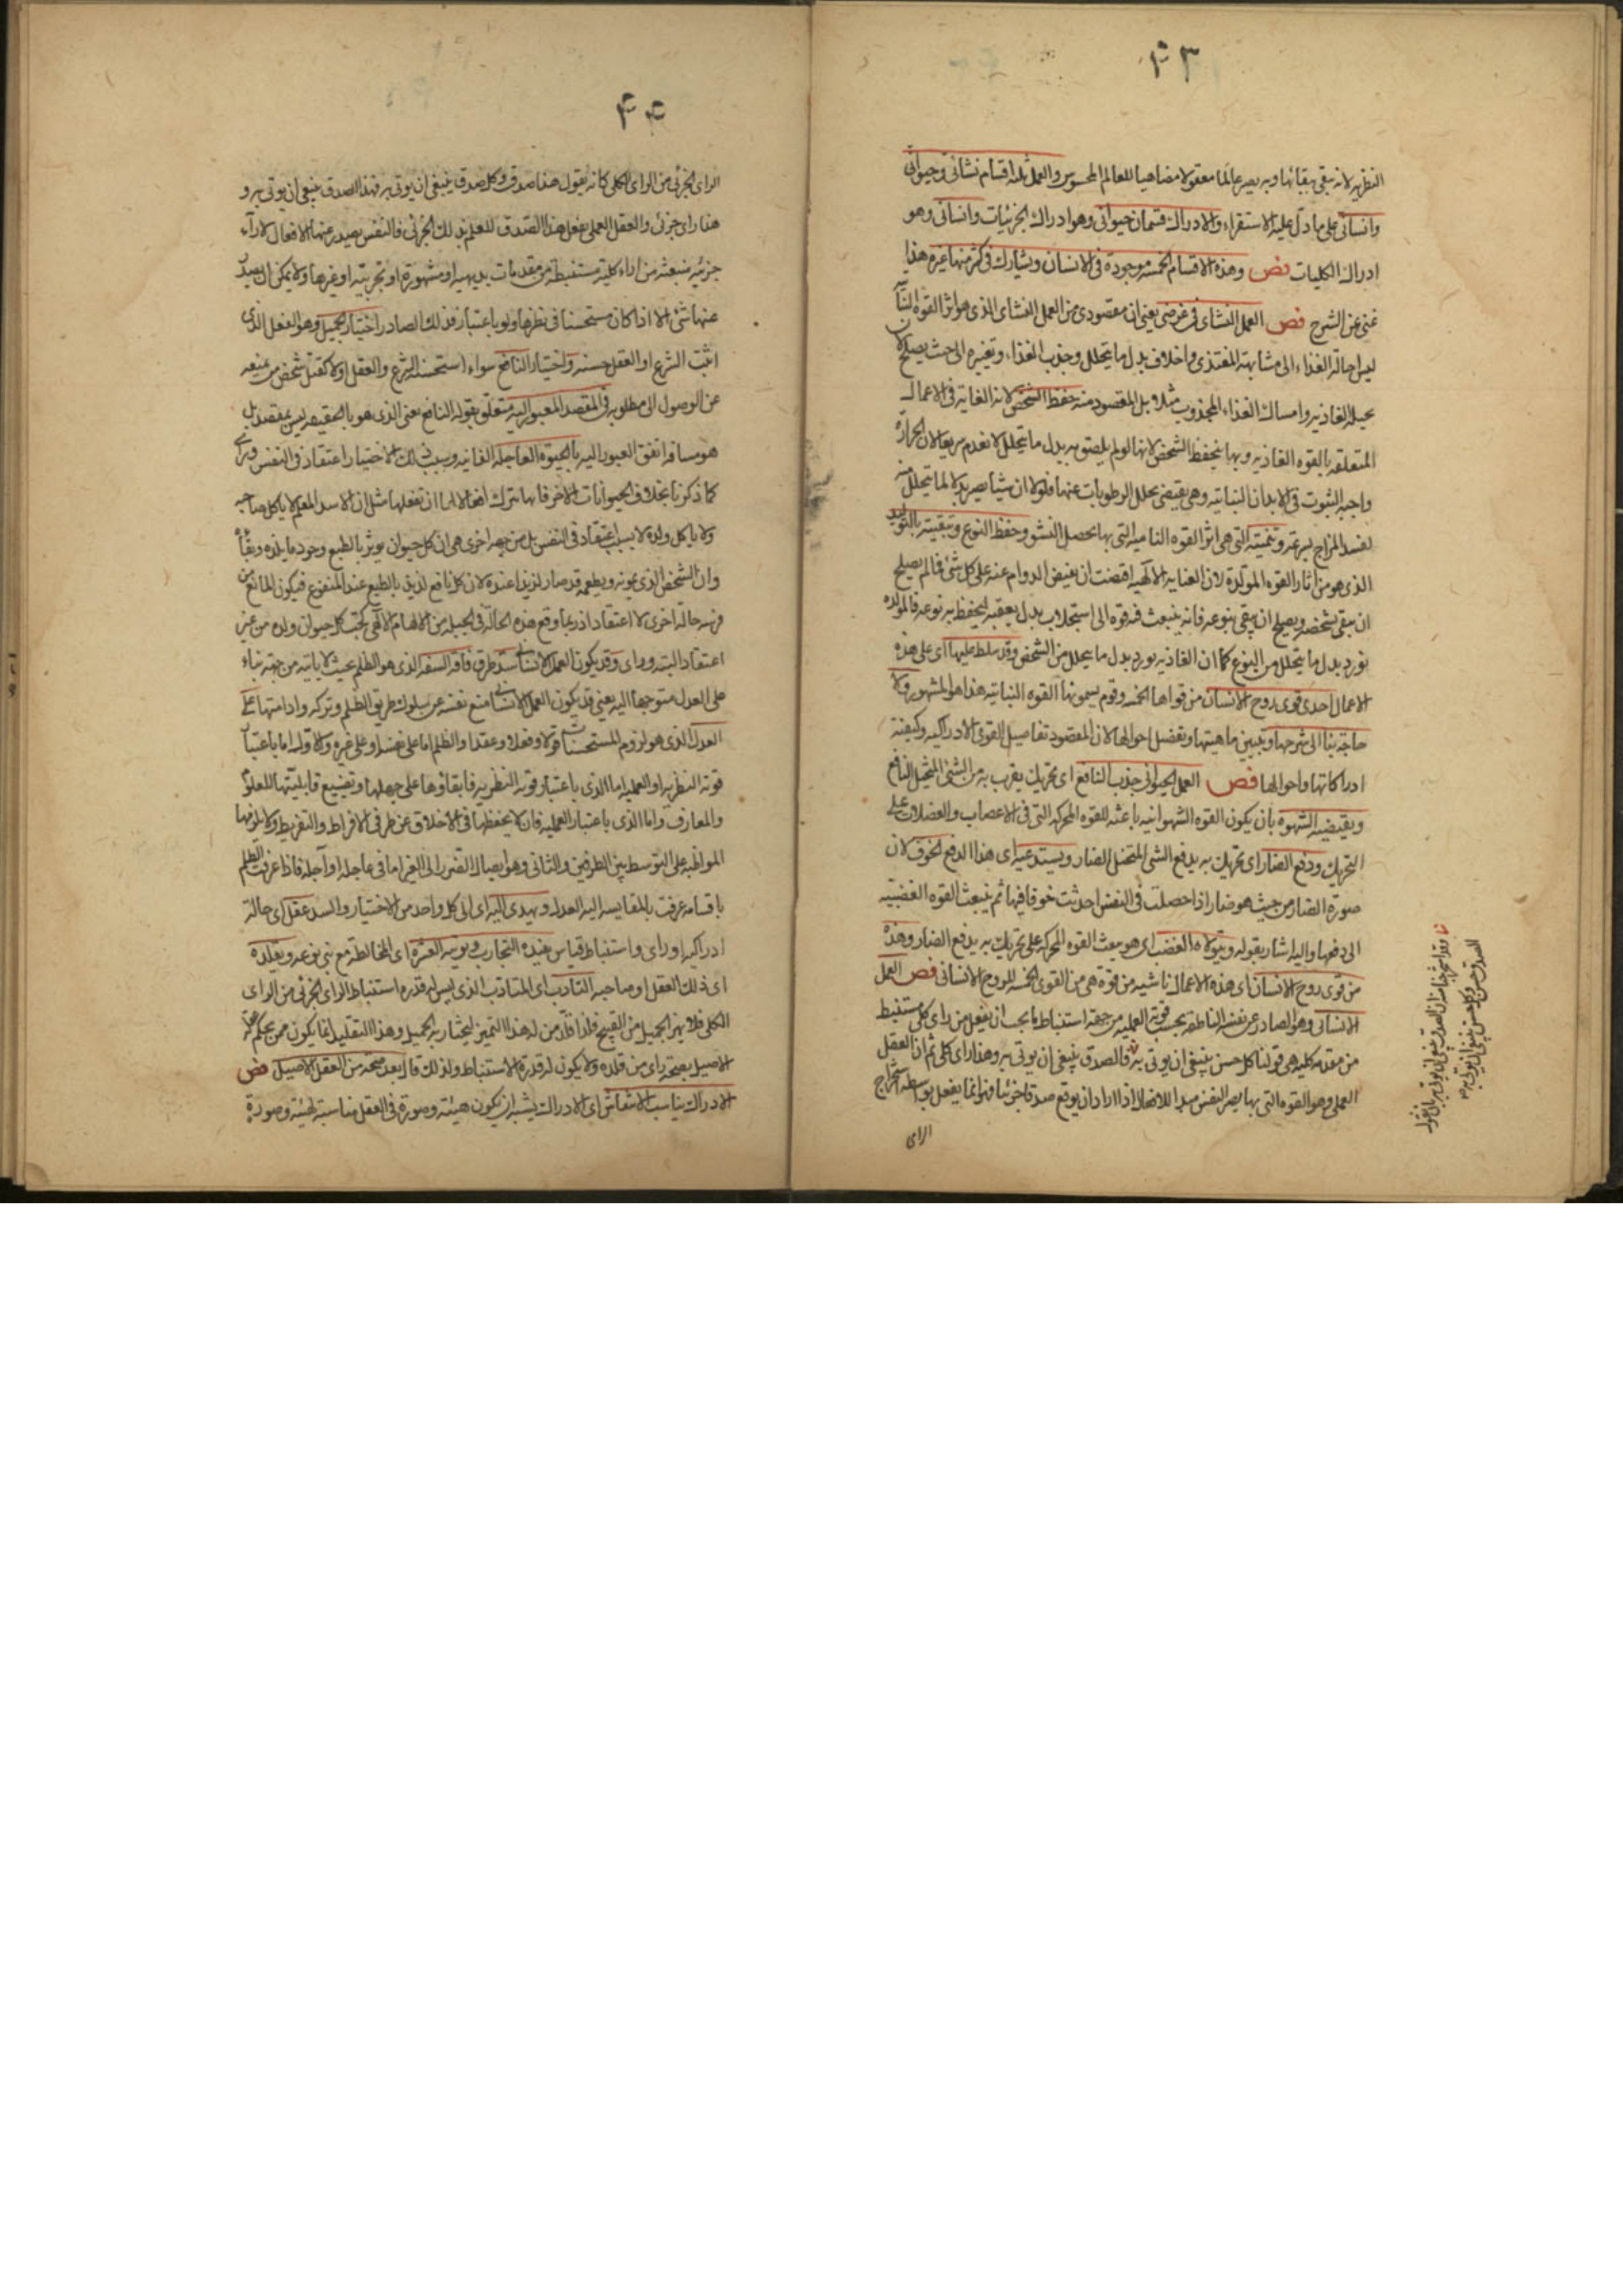 ۴۳
النظریه لانه تبقی ببقائها وبه یصیر عالما معقولا مضاهیا للعالم المحسوس والعمل ثلثه اقسام نشائی وحیوانی
وانسانی علی ما دل علیه الاستقراء والادراك قسمان حیوانی وهو ادراك الجزئیات وانسانی وهو
ادراك الکلیات فص وهذه الاقسام الخمسه موجودة فی الانسان ویشارك فی کثیر منها غیره هذا
غنی عن الشرح فص العمل النشائی فی غرضی یعنی ان مقصودی من العمل النشائی الذی هو اثر القوه النباتیه
لیس احالة الغذاء الی مشابهة المغتذی واخلاف بدل ما یتحلل وجذب الغذاء وتغییره الی حیث یصلح لان
تحیله الغاذیه وامساك الغذاء المجذوب مثلا بل المقصود منه حفظ الشخص لانه الغایة فی الاعمال
المتعلقه بالقوه الغاذیه وبها ینحفظ الشخص لانها لو لم یلصق به بدل ما یتحلل لانعدم سریعا لان الحرارة
واجبه الثبوت فی الابدان النباتیه وهی یقتضی تحلل الرطوبات عنها فلولا ان شیئا یصیر بدلا لما یتحلل منه
لفسد المزاج بسرعة وتنمیته التی هی اثر القوه النامیه التی بها یحصل النشو وحفظ النوع وتبقیته بالتولید
الذی هو من اثار القوه المولدة لان العنایه الالهیه اقتضت ان یفیض الدوام عنه علی کل شئ فما لم یصلح
ان یبقی بشخصه ویصلح ان یبقی بنوعه فانه ینبعث فیه قوه الی استجلاب بدل یعقبه لیحفظ به نوعه فالمولده
تورد بدل ما یتحلل من النوع کما ان الغاذیه یورد بدل ما یتحلل من الشخص وقد سلط علیها ای علی هذه
الاعمال احدی قوی روح الانسان من قواها الخمسه وقوم یسمونها القوه النباتیه هذا هو المشهور ولا
حاجة بنا الی شرحها وتبیین ماهیتها وتفضیل احوالها لان المقصود تفاصیل القوی الادراکیه وکیفیة
ادراکاتها واحوالها فص العمل الحیوانی جذب النافع ای تحریك یقرب به من الشئ المتخیل النافع
ویقتضیه الشهوه بان یکون القوه الشهوانیه باعثه للقوه المحرکه التی فی الاعصاب والعضلات علی
التحریك ودفع الضار ای تحریك به یدفع الشئ المتخیل الضار ویستدعیه ای هذا الدفع الخوف لان
صورة الضار من حیث هو ضار اذا حصلت فی النفس احدثت خوفا فیها ثم ینبعث القوه الغضبیه
الی دفعها والیه اشار بقوله ویتولاه الغضب ای هو یبعث القوه المحرکه علی تحریك به یدفع الضار وهذه
من قوی روح الانسان ای هذه الاعمال ناشیه من قوة هی من القوی الخمسه للروح الانسانی فص العمل
الانسانی وهو الصادر عن نفسه الناطقه بحسب قوته العملیه من جهة استنباط ما یجب ان یفعل من رای کلی مستنبط
من مقدمه کلیه هی قولنا کل حسن ینبغی ان یوتی به فالصدق ینبغی ان یوتی به وهذا رای کلی ثم ان العقل
العملی وهو القوه التی بها یصیر النفس مبدا للافعال اذا اراد ان یوقع صدقا جزئیا فهو انما یفعل بواسطه استخراج
الرای
۴۴
الرای الجزئی من الرای الکلی کانه یقول هذا صدق وکل صدق ینبغی ان یوتی به فهذا الصدق ینبغی ان یوتی به و
هذا رای جزئی والعقل العملی یفعل هذا الصدق للعلم بذلك الجزئی فالنفس یصدر عنها الافعال لاراء
جزئیه منبعثه من اراء کلیة مستنبطة من مقدمات بدیهیه او مشهورة او تجربیه او غیرها ولا یمکن ان یصدر
عنها شئ الا اذا کان مستحسنا فی نظرها ولو باعتبار فذلك الصادر اختیار الجمیل وهو الفعل الذی
اثبت الشرع او العقل حسنه واختیار النافع سواء استحسنه الشرع والعقل اولا کقتل شخص من منعه
عن الوصول الی مطلوبه فی المقصد المعبور الیه متعلق بقوله النافع یعنی الذی هو بالحقیقه لیس بمقصد بل
هو مسافه اتفق العبور الیه بالحیوة العاجله الفانیه وسبب ذلك الاختیار اعتقاد فی النفس ورای
کما ذکرنا بخلاف الحیوانات الاخر فانها تترك افعالا لها ان تفعلها مثل ان الاسد المعلم لا یاکل صاحبه
ولا یاکل ولده لا بسبب اعتقاد فی النفس بل من جهه اخری هی ان کل حیوان یوثر بالطبع وجود ما یلذه وبقاه
وان الشخص الذی یمونه ویطعمه قد صار لذیذا عنده لان کل نافع لذیذ بالطبع عند المنتفع فیکون المانع عن
فرسه حالة اخری لا اعتقاد اذ ربما وقع هذه الحالة فی الجبله من الالهام الالهی کحب کل حیوان ولده من غیر
اعتقاد البته ورای وقد یکون العمل الانسانی سد طرق فاقه السفه الذی هو الظلم بحیث لا یاتیه من جهة بناء
علی العدل متوجها الیه یعنی قد یکون العمل الانسانی منع نفسه عن سلوك طریق الظلم وترکه وادامتها علی
العدل الذی هو لزوم المستحسنات قولا وفعلا وعقدا والظلم اما علی نفسه او علی غیره والاول اما باعتبار
قوته النظریه او العملیه اما الذی باعتبار قوته النظریه فابقاوها علی جهلها وتضییع قابلیتها للعلوم
والمعارف واما الذی باعتبار العملیه فان لا یحفظها فی الاخلاق عن طرفی الافراط والتفریط ولا یلزمها
المواظبه علی التوسط بین الطرفین والثانی وهو ایصال الضرر الی الغیر اما فی عاجله او آجله فاذا عرفت الظلم
باقسامه عرفت بالمقایسه الیه العدل ویهدی الیه ای الی کل واحد من الاختیار والسد عقل ای حالة
ادراکیه او رای واستنباط قیاس یفیده التجارب ویوتیه العشره ای المخالطه مع بنی نوعه ویقلده
ای ذلك العقل او صاحبه التادب ای المتادب الذی لیس له قدره استنباط الرای الجزئی من الرای
الکلی فلا یمیز الجمیل من القبیح فلذا قلد من له هذا التمیز لیختار به الجمیل وهذا التقلید انما یکون ممن یحکم عقله
الاصیل بصحة رای من قلده ولا یکون له قدرة الاستنباط ولذلك قال بعد صحة من العقل الاصیل فص
الادراك یناسب الانتقاش ای الادراك یشبه ان یکون هیئة وصورة فی العقل مناسبة لهیئة وصورة